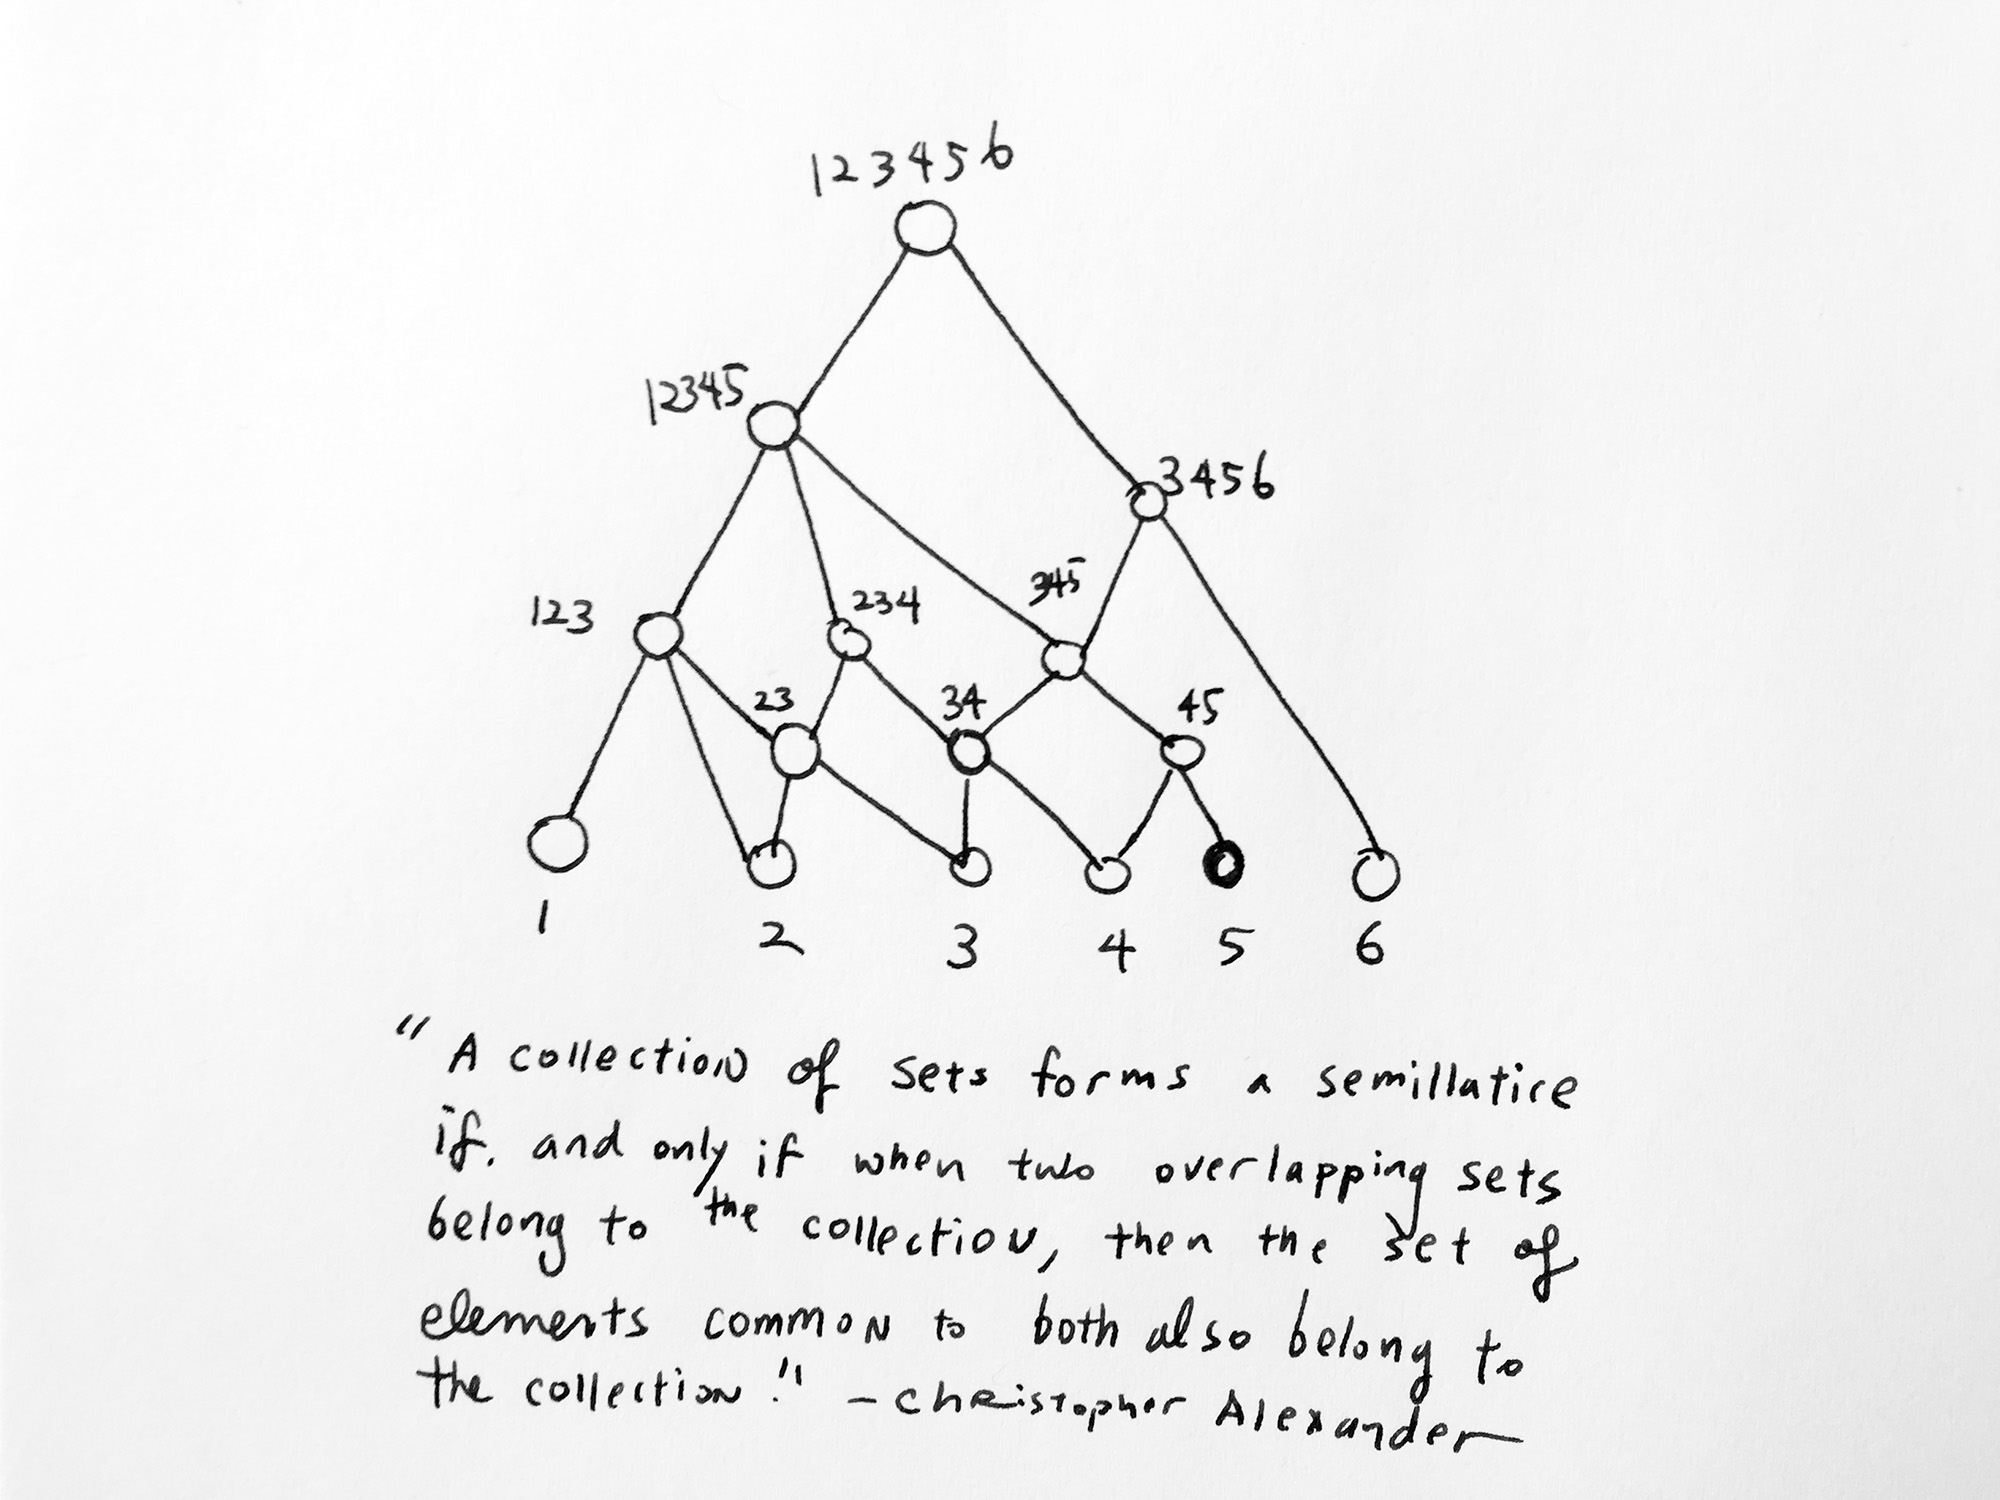 123456
12345
3456
123
234
345
23
34
45
1 2 3 4 5 6
"A collection of sets forms a semillatice
if, and only if when two overlapping sets
belong to the collection, then the set of
elements common to both also belong to
the collection." - Christopher Alexander